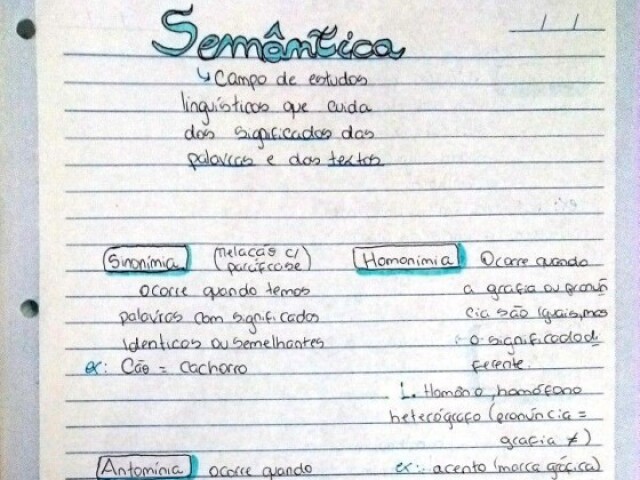 Semântica
↳ Campo de estudos
linguísticos que cuida
dos significados das
palavras e dos textos
Sinonímia (relação c/
paráfrase)
ocorre quando temos
palavras com significados
identicos ou semelhantes
ex: Cão = cachorro
Antomínia ocorre quando
Homonimia Ocorre quando
a grafia ou pronún
cia são iguais, mas
o significado di
ferente.
L. Homôno, homófono
heterógrafo (pronúncia =
grafia ≠)
ex: acento (marca gráfica)